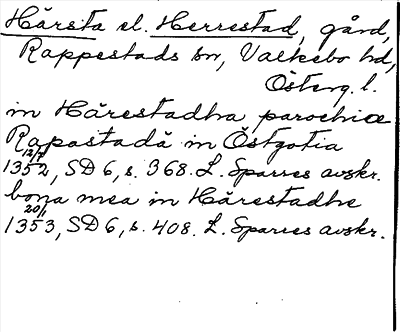 Hårsta el. Herrestad, gård,
Rappestads sn, Valkebo hd,
Österg. l.
in Hårestadha parochiæ
Rapastadâ in Östgotia
12/7
1352, SD 6, s. 368. L. Sparres avskr.
bona mea in Hårestadhe
20/1
1353, SD 6, s. 408. L. Sparres avskr.